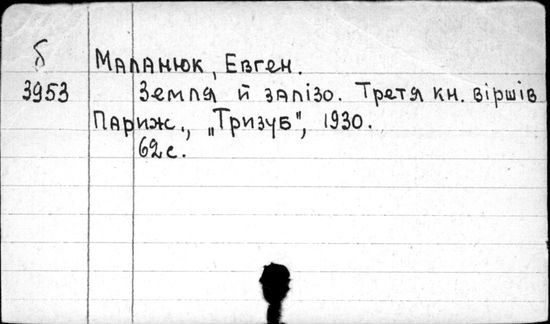 б
3953
Маланюк, Евген.
Земля й залізо. Третя кн. віршів
Париж., „Тризуб", 1930.
62 с.